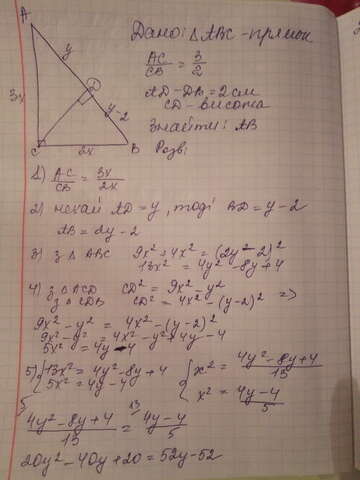 A
Дано: △ABC - прямок
y
AC/CB = 3/2
D
AD-DB=2см
3x
y-2
CD-висота
Знайти: AB
C
2x
B
Розв:
1) AC/CB = 3x/2x
2) нехай AD=y, тоді BD=y-2
AB=2y-2
3) з △ ABC 9x²+4x²=(2y-2)²
13x² = 4y²-8y+4
4) з △ACD CD²=9x²-y²
з △CDB CD²=4x²-(y-2)² =>
9x²-y² = 4x²-(y-2)²
9x²-y² = 4x²-y²+4y-4
5x² = 4y-4
5) { 13x² = 4y²-8y+4 { x² = (4y²-8y+4)/13
5x² = 4y-4 x² = (4y-4)/5
5
(4y²-8y+4)/13 = 13 (4y-4)/5
20y²-40y+20=52y-52